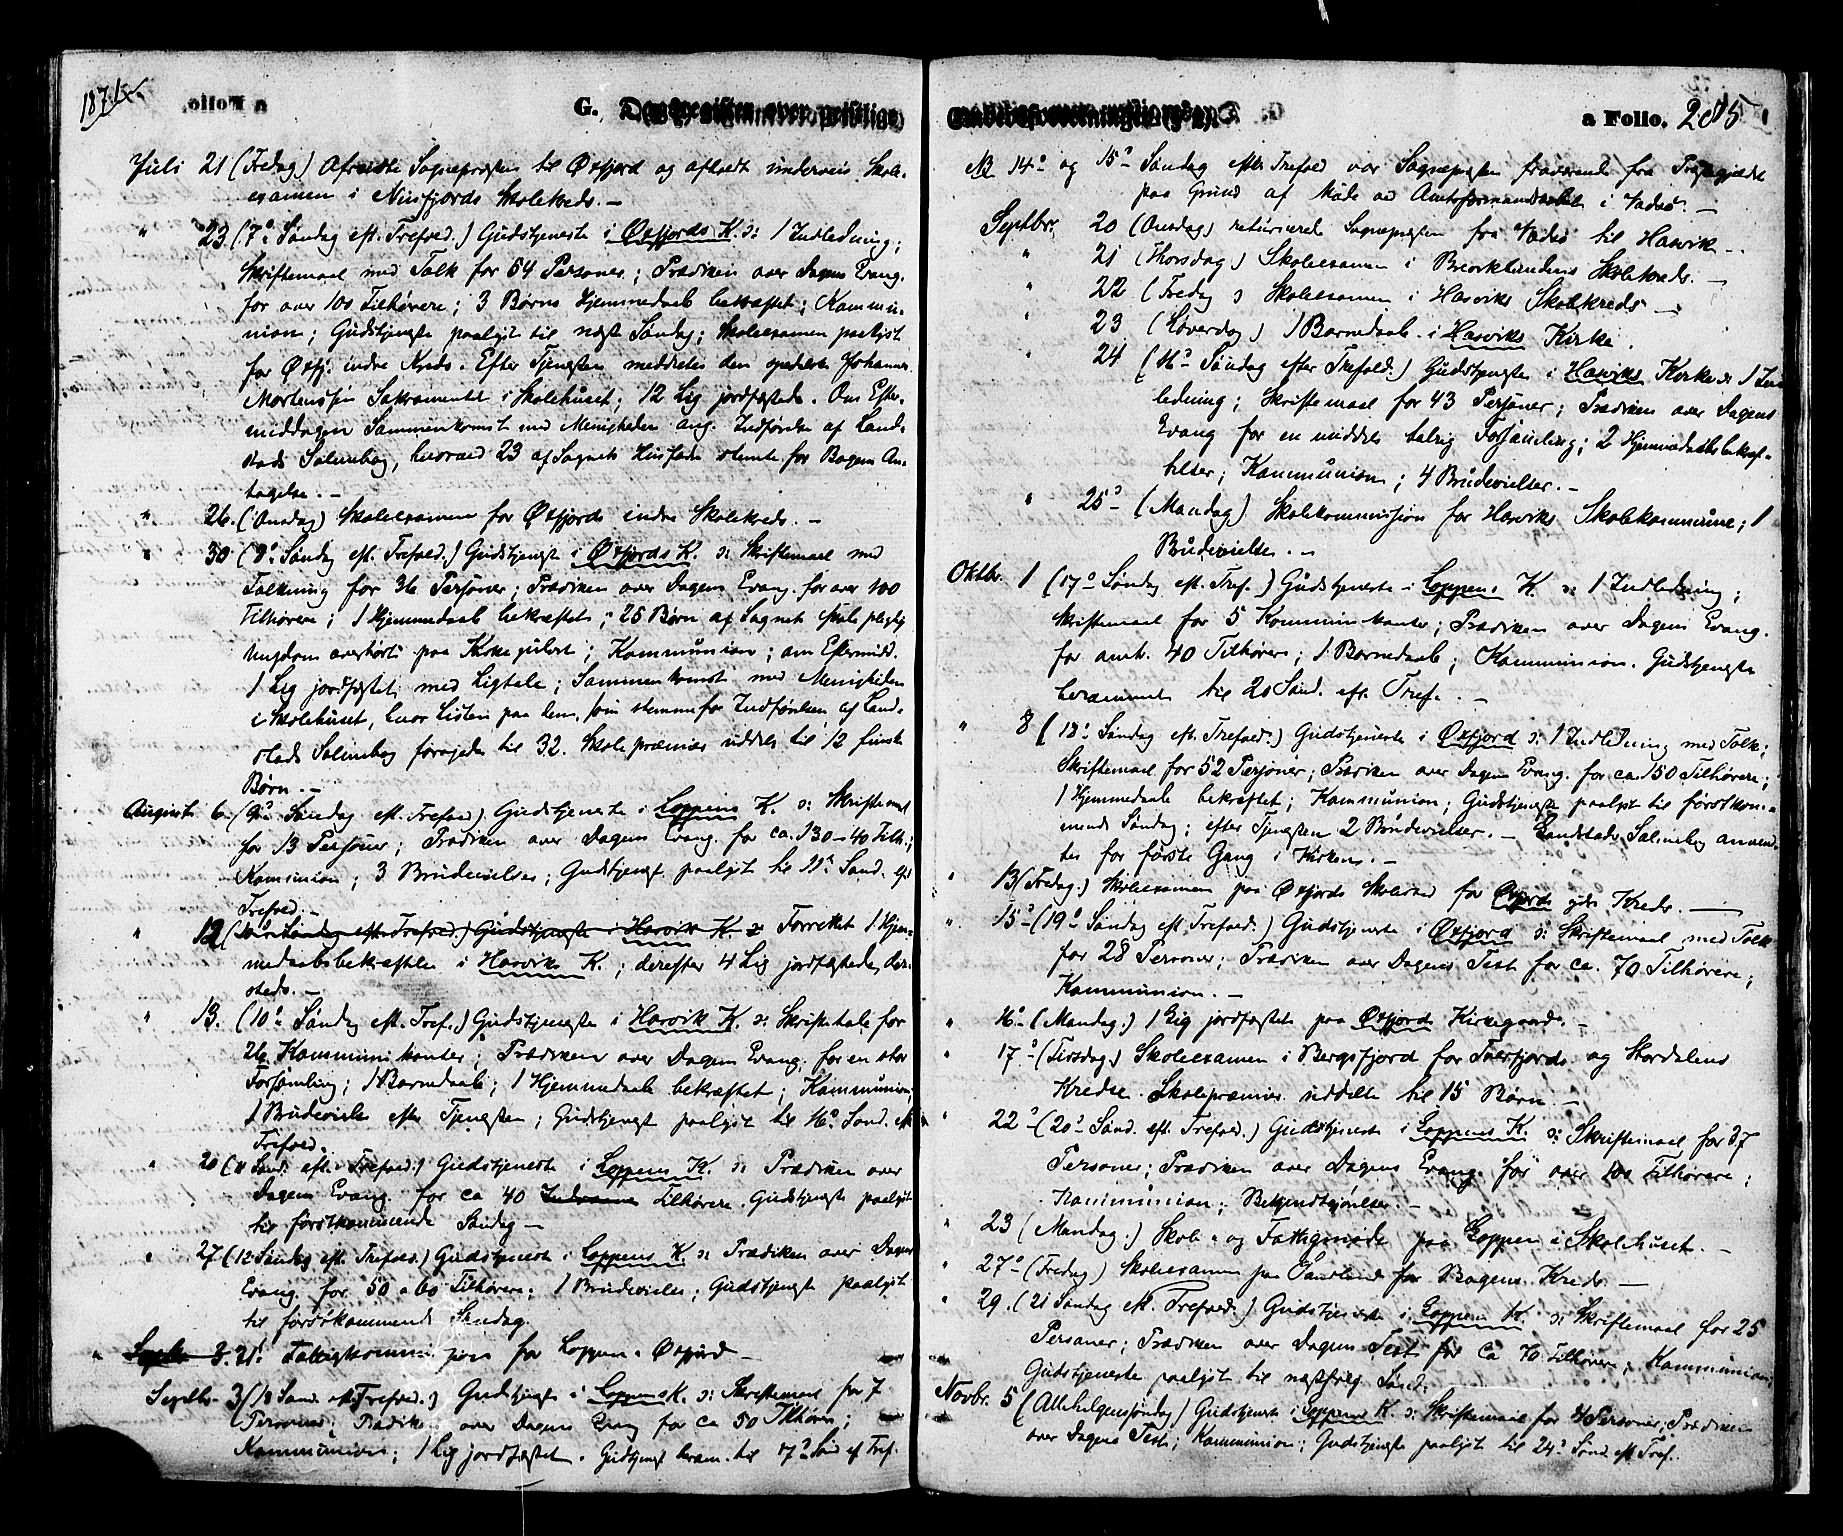 1871
G. Dagregister over geistlige
Juli 21 (Fredag) Afreiste Sognepræsten til Øxfjord og afholdt underveis Skole-
examen i Nusfjords Skolekreds. –
" 23 (7de Søndag eft. Trefold.) Gudstjeneste i Øxfjords K. ɔ: 1 Indledning;
Skriftemaal med Tolk for 54 Personer; Prædiken over Dagens Evang.
for over 100 Tilhørere; 3 Børns Hjemmedaab bekræftet; Kommu-
nion; Gudstjeneste paalyst til næste Søndag; Skoleexamen paalyst
for Øxfj. indre Kreds. Efter Tjenesten meddeltes den Johannes
Mortensen Sakramentet i Skolehuset; 12 Lig jordfæstede. Om Efter-
middagen Sammenkomst med Menigheden ang. Indførelse af Land-
stads Salmebog, hvorved 23 af Sognets Husfædre stemte for Bogens An-
tagelse. –
" 26. (Onsdag) Skoleexamen for Øxfjords indre Skolekreds. –
" 30 (8de Søndag eft. Trefold.) Gudstjeneste i Øxfjords K. ɔ: Skriftemaal med
Tolkning for 36 Personer; Prædiken over Dagens Evang. for over 100
Tilhørere; 1 Hjemmedaab bekræftet; 25 Børn af Sognets skolepligtige
Ungdom overhørt paa Kirkegulvet; Kommunion; om Eftermidd.
1 Lig jordfæstet med Ligtale; Sammenkomst med Menigheden
i Skolehuset, hvor Listen paa dem, som stemme for Indførelsen af Land-
stads Salmebog forøgedes til 32. Skolepræmier uddelt til 12 finske
Børn. –
August 6. (9de Søndag eft. Trefold) Gudstjeneste i Loppens K. ɔ: Skriftemaal
for 13 Personer; Prædiken over Dagens Evang. for ca. 130–40 Tilh.;
Kommunion; 3 Brudevielser; Gudstjenest. paalyst til 11te Sønd. eft
Trefold. –
" 12 ( Søndag eft. Trefold.) Gudstjeneste i Hasvik K. ɔ: Forrettet 1 Hjem-
medaabsbekræftelse i Hasviks K.; derefter 4 Lig jordfæstede der-
steds. –
" 13. (10de Søndag eft. Tref.) Gudstjeneste i Hasvik K. ɔ: Skriftetale for
26 Kommunikanter; Prædiken over Dagens Evang. for en stor
Forsamling; 1 Barnedaab; 1 Hjemmedaab bekræftet; Kommunion;
1 Brudevielse efter Tjenesten; Gudstjenest paalyst til 16de Sønd. eft
Trefold.
" 20 (11 Sønd. eft. Trefold.) Gudstjeneste i Loppens K. ɔ: Prædiken over
Dagens Evang. for ca 40 Tilhørere. Gudstjeneste paalyst
til førstkommende Søndag –
" 27 (12 Søndag eft. Trefold.) Gudstjeneste i Loppens K. ɔ: Prædiken over Dagens
Evang. for 50 a 60 Tilhørere; 1 Brudevielse; Gudstjeneste paalyst
til førstkommende Søndag.
" Septbr 3. 21. Fattigkommission for Loppen - Øxfjord –
Septbr. 3 (13 Sønd. eft Trefold.) Gudstjeneste i Loppens K. ɔ: Skriftemaal for 7
Personer; Prædiken over Dagens Evang for ca 50 Tilhørere;
Kommunion; 1 Lig jordfæstet. Gudstjenest beram. til 17de Sønd ef Tref.
a Folio. 285
NB 14de og 15de Søndag efter Trefold var Sognepræsten fraværende fra Præstegjældet
paa Grund af Møde ved Amtsformandskabet i Vadsø. –
Septbr. 20 (Onsdag) returnerede Sognepræsten fra Vadsø til Hasvik –
" 21 (Thorsdag) Skoleexamen i Breviklundens Skolekreds. –
" 22 (Fredag) Skoleexamen i Hasviks Skolekreds –
" 23 (Løverdag) 1 Barnedaab i Hasviks Kirke.
" 24 (16de Søndag efter Trefold.) Gudstjeneste i Hasviks Kirke ɔ: 1 Ind-
ledning; Skriftemaal for 43 Personer; Prædiken over Dagens
Evang for en middels talrig Forsamling; 2 Hjemmedaabsbekræf-
telser; Kommunion; 4 Brudevielser. –
" 25de (Mandag) Skolekommission for Hasviks Skolekommune; 1
Brudevielse. –
Oktbr. 1 (17de Søndag eft. Tref.) Gudstjeneste i Loppens K ɔ: 1 Indledning;
Skriftemaal for 5 Kommunikanter; Prædiken over Dagens Evang.
for omtr. 40 Tilhørere; 1 Barnedaab; Kommunion. Gudstjeneste
berammet til 20 Sønd. eft. Tref. –
" 8 (18de Søndag eft. Trefold.) Gudstjeneste i Øxfjord ɔ: 1 Indledning med Tolk;
Skriftemaal for 52 Personer; Prædiken over Dagens Evang. for ca 150 Tilhørere;
1 Hjemmedaab bekræftet; Kommunion; Gudstjeneste paalyst til førstkom-
mende Søndag; efter Tjenesten 2 Brudevielser. – Landstads Salmebog anvend-
tes for første Gang i Kirken. –
" 13 (Fredag.) Skoleexamen paa Øxfjords Skolested for Øxfjords ydre Kreds. –
" 15de (19de Søndag eft. Trefold.) Gudstjeneste i Øxfjord ɔ: Skriftemaal med Tolk
for 28 Personer; Prædiken over Dagens Text for ca. 70 Tilhørere;
Kommunion. –
" 16de (Mandag.) 1 Lig jordfæstet paa Øxfjord Kirkegaard. –
" 17de (Tirsdag) Skoleexamen i Bergsfjord for Tverfjords og Stordalens
Kredse. Skolepræmier uddelte til 15 Børn –
" 22de (20de Sønd. eft. Trefold.) Gudstjeneste i Loppens K. ɔ: Skriftemaal for 37
Personer; Prædiken over Dagens Evang. for over 100 Tilhørere;
Kommunion; Bekjendtgjørelser. –
" 23 (Mandag.) Skole- og Fattigmøde paa Loppen i Skolehuset. –
" 27de (Fredag) Skoleexamen paa Sandland for Bogens Kreds. –
" 29. (21 Søndag eft. Trefold.) Gudstjeneste i Loppens K. ɔ: Skriftemaal for 25
Personer; Prædiken over Dagens Text for ca 70 Tilhørere; Kommunion;
Gudstjeneste paalyst til næstfølg Sønd.
Novbr. 5 (Allehelgensøndag) Gudstjeneste i Loppens K. ɔ: Skriftemaal for 4 Personer; Prædiken
over Dagens Text; Kommunion; Gudstjeneste paalyst til 24de Sønd eft Tref.